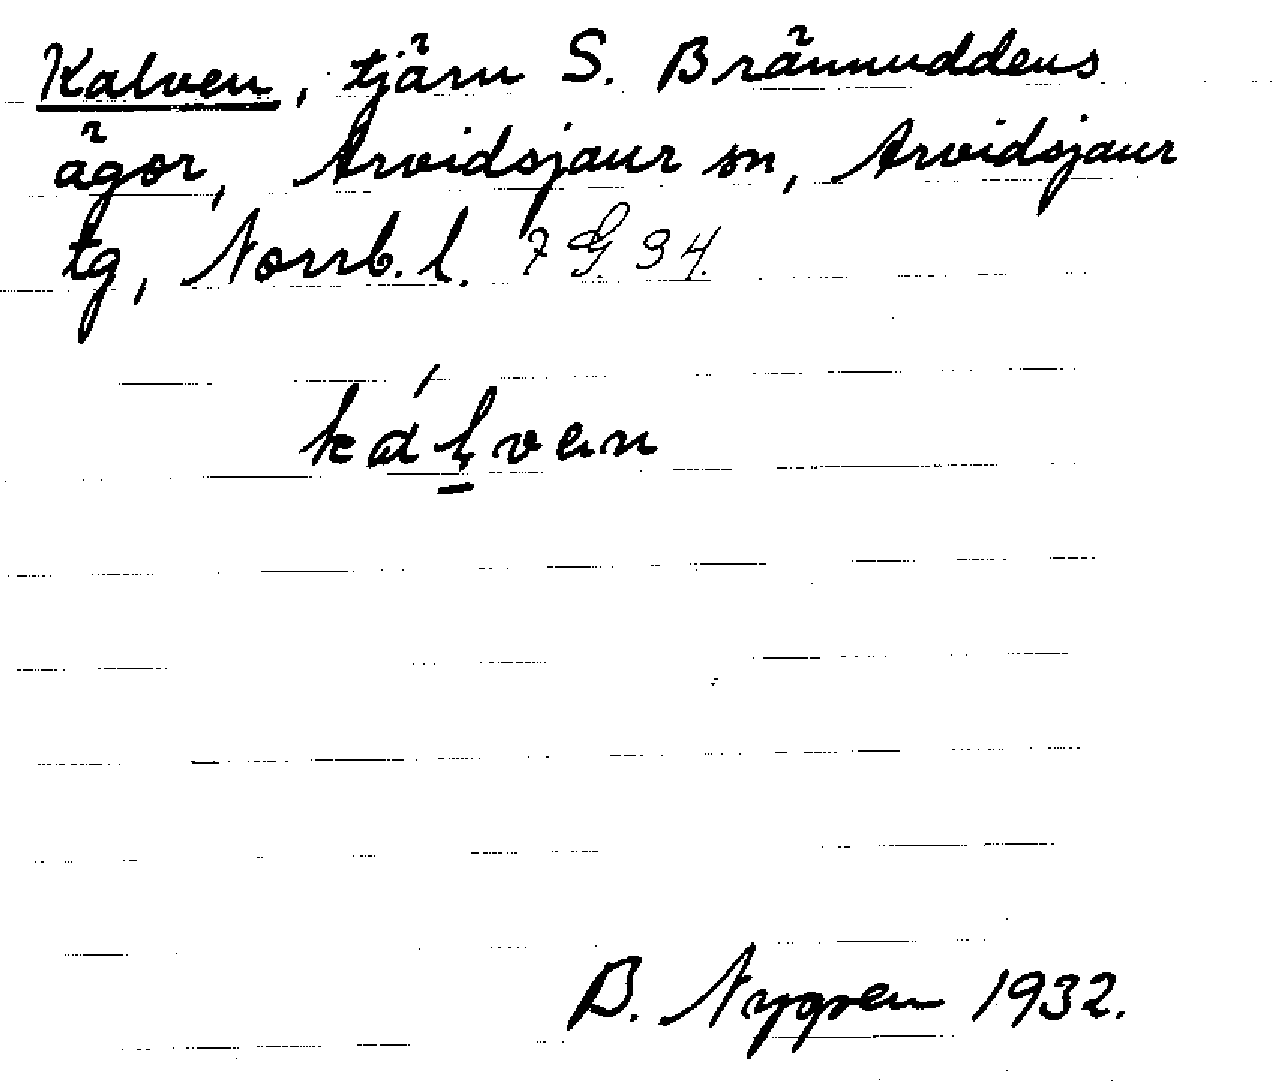 Kalven, tjärn S. Brännuddens
ägor, Arvidsjaur sn, Arvidsjaur
tg, Norrb. l. 7 G. 34.
kálven
B. Nygren 1932.